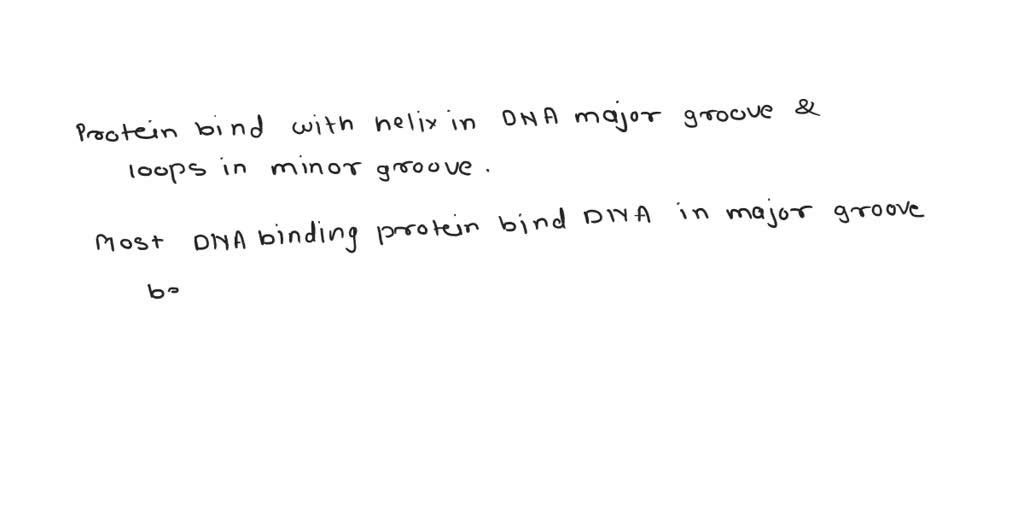 Protein bind with helix in DNA major groove &
loops in minor groove.
Most DNA binding protein bind DNA in major groove
be